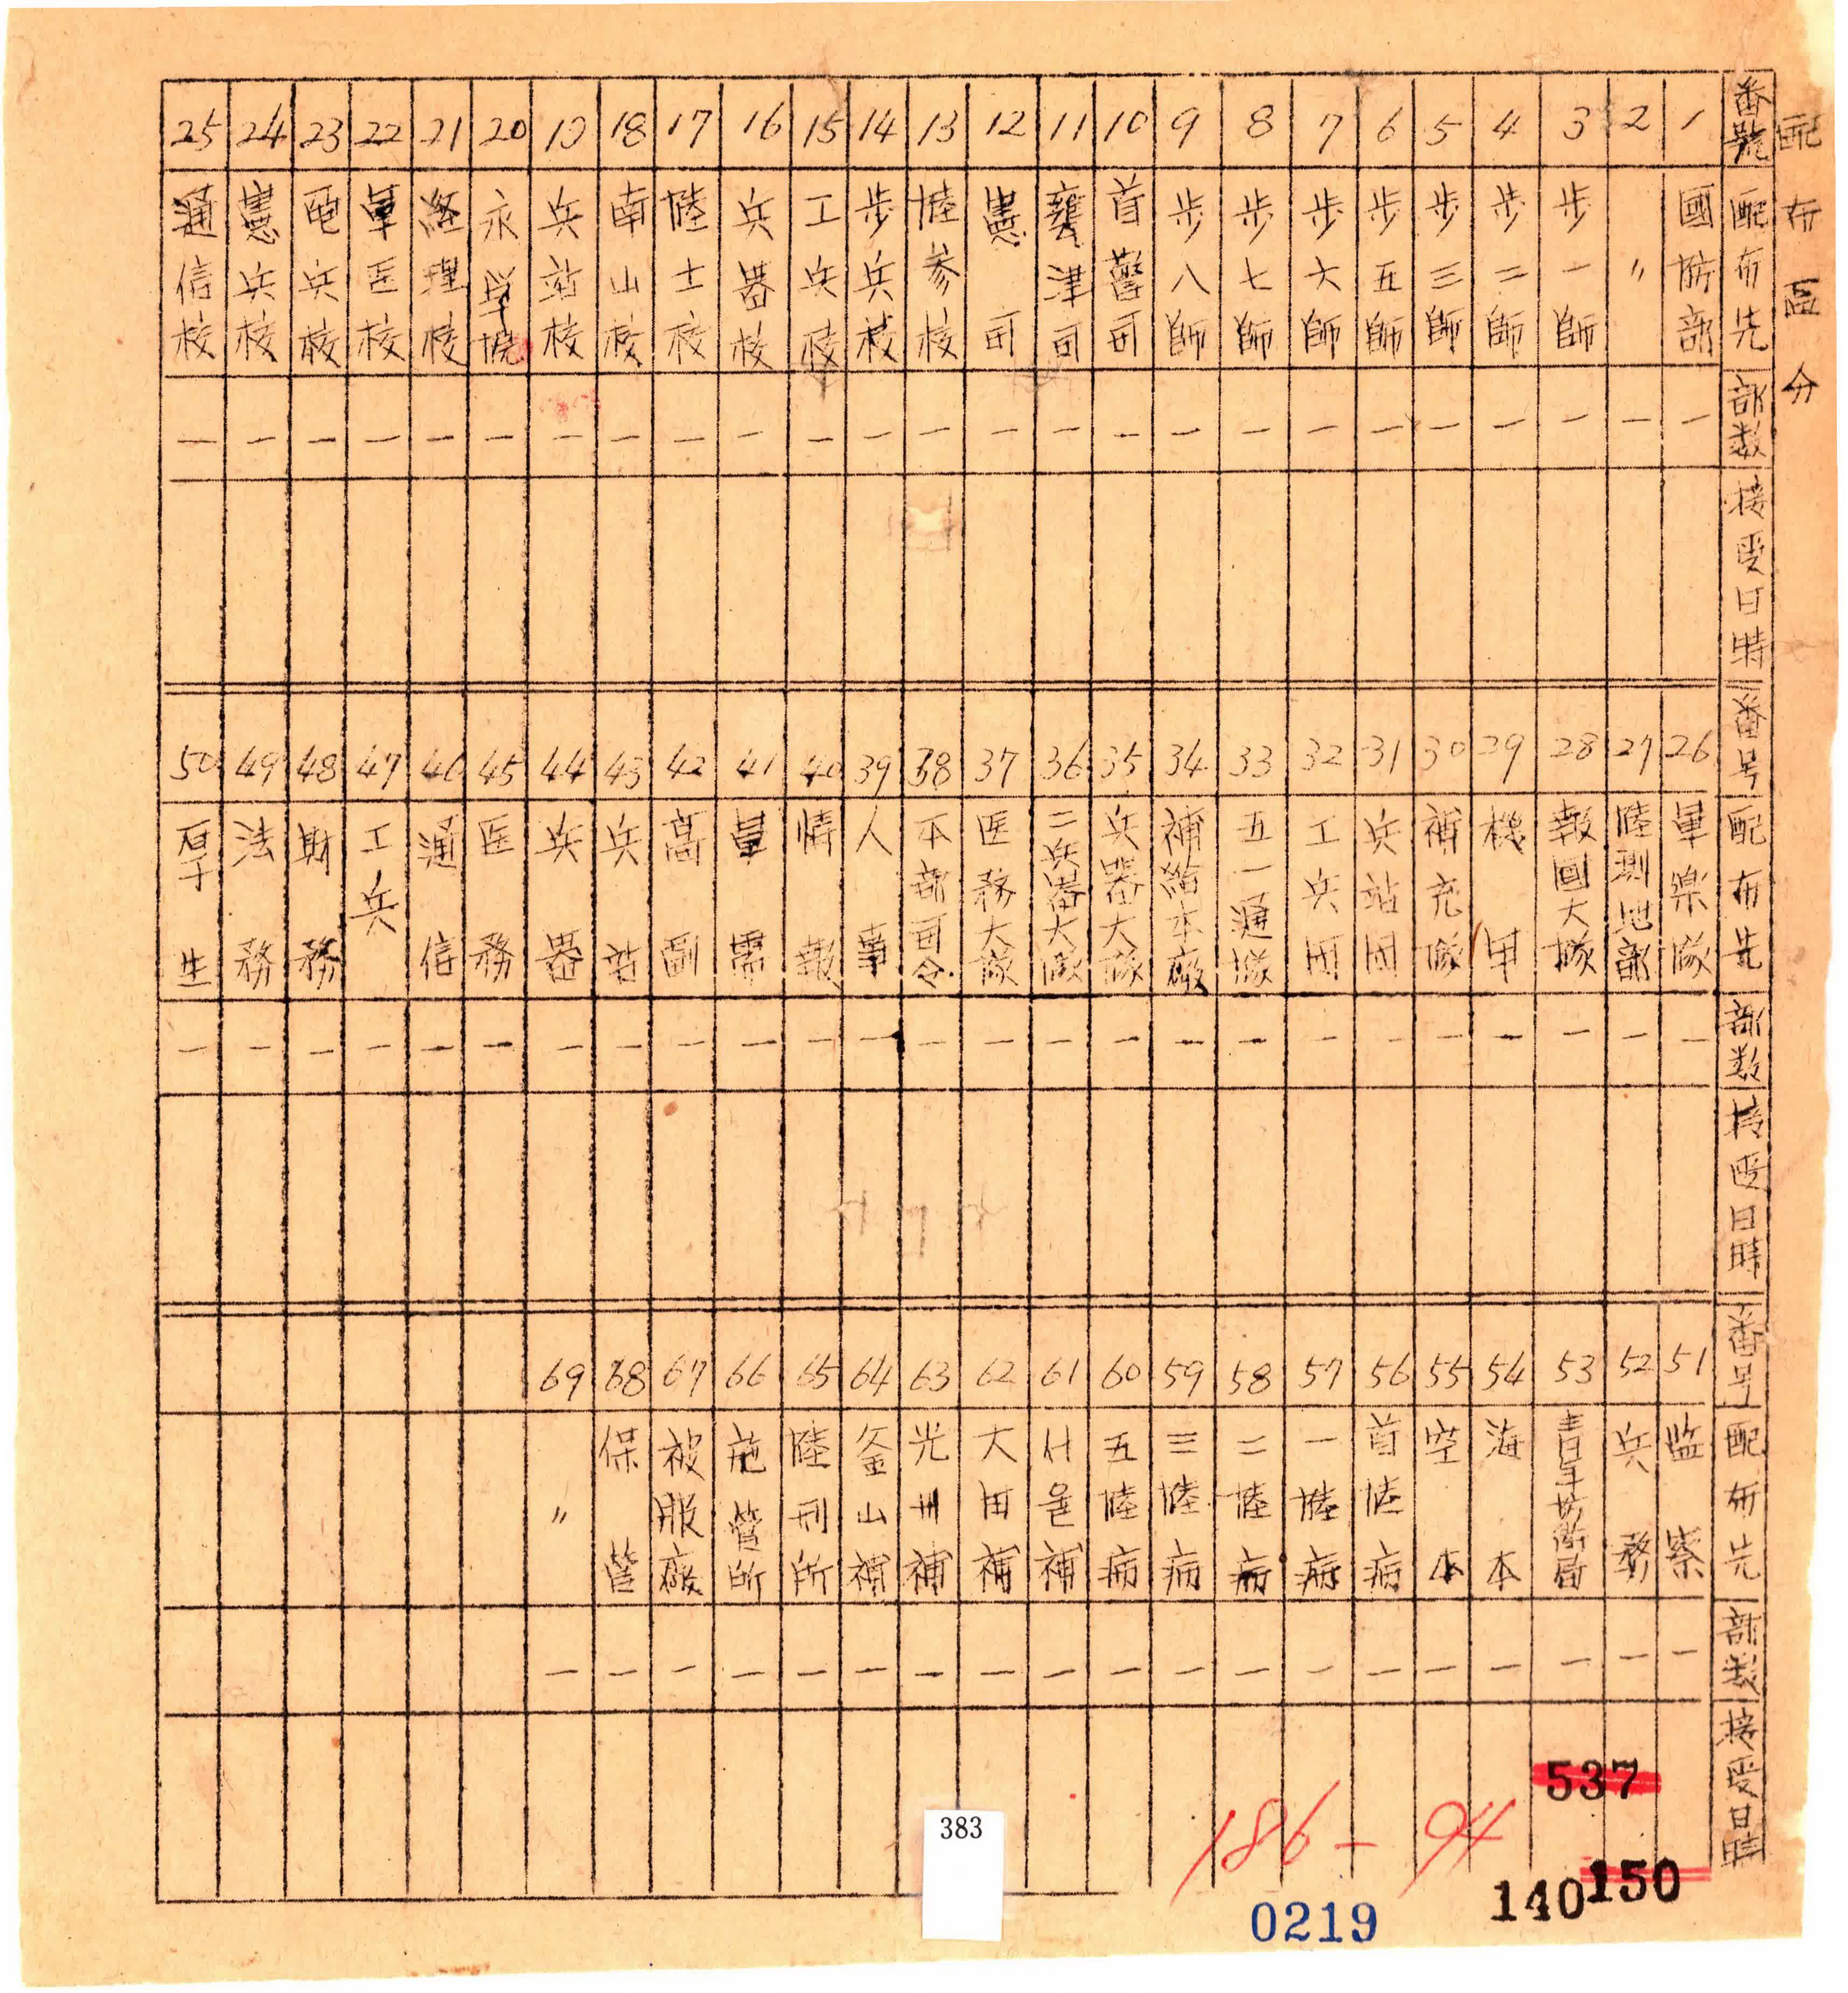 配布區分
番號 配布先 部数 接受日時
1 國防部 一
2 〃 一
3 步一師 一
4 步二師 一
5 步三師 一
6 步五師 一
7 步六師 一
8 步七師 一
9 步八師 一
10 首警司 一
11 甕津司 一
12 憲司 一
13 陸参校 一
14 步兵校 一
15 工兵校 一
16 兵器校 一
17 陸士校 一
18 南山校 一
19 兵站校 一
20 永登浦院 一
21 経理校 一
22 軍医校 一
23 砲兵校 一
24 憲兵校 一
25 通信校 一
番号 配布先 部数 接受日時
26 軍楽隊 一
27 陸測地部 一
28 報國大隊 一
29 機甲 一
30 補充隊 一
31 兵站団 一
32 工兵団 一
33 五一通隊 一
34 補給本廠 一
35 兵器大隊 一
36 二兵器大隊 一
37 医務大隊 一
38 本部司令 一
39 人事 一
40 情報 一
41 軍需 一
42 高副 一
43 兵站 一
44 兵器 一
45 医務 一
46 通信 一
47 工兵 一
48 財務 一
49 法務 一
50 厚生 一
番号 配布先 部数 接受日時
51 监察 一
52 兵務 一
53 青年防衛局 一
54 海本 一
55 空本 一
56 首陸病 一
57 一陸病 一
58 二陸病 一
59 三陸病 一
60 五陸病 一
61 서울補 一
62 大田補 一
63 光州補 一
64 釜山補 一
65 陸刑所 一
66 施管所 一
67 被服廠 一
68 保管 一
69 〃 一
537
186-94
383
0219
140
150